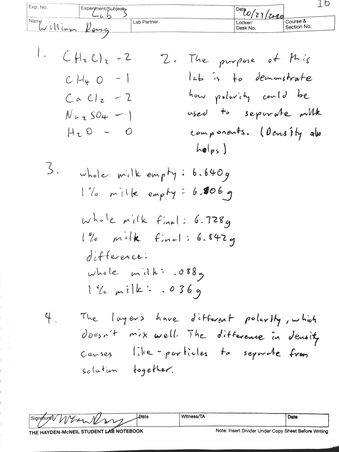 16
Exp. No.
Experiment/Subject
Lab 3
Date
Name
William
Lab Partner
Locker/
Desk No.
Course &
Section No.
1. CH2Cl2 - 2
CH4O - 1
CaCl2 - 2
Na2SO4 - 1
H2O - 0
2. The purpose of this
lab is to demonstrate
how polarity could be
used to separate milk
components. (Density also
helps)
3. whole milk empty: 6.640g
1% milk empty: 6.806g
whole milk final: 6.728g
1% milk final: 6.842g
difference:
whole milk: .088g
1% milk: .036g
4. The layers have different polarity, which
doesn't mix well. The difference in density
causes like-particles to separate from
solution together.
Signature
Date
Witness/TA
Date
THE HAYDEN-McNEIL STUDENT LAB NOTEBOOK
Note: Insert Divider Under Copy Sheet Before Writing